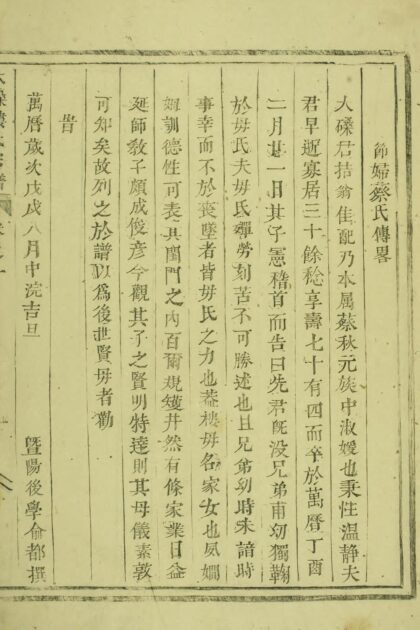 節婦蔡氏傳畧
大磜君拮翁佳配乃本属蔡秋元族中淑媛也秉性温静夫
君早逝寡居三十餘稔享壽七十有四而卒於萬曆丁酉
二月廿一日其子憲稽首而告曰先君既没兄弟甫幼獨鞠
於毋氏夫毋氏殫勞刻苦不可勝述也且兄弟幼時未諳時
事幸而不於喪墜者皆毋氏之力也蓋樓毋名家女也夙嫺
姆訓德性可表其閨門之内百爾規矱井然有條家業日益
延師敎子頗成俊彦今觀其子之賢明特達則其母儀素敦
可知矣故列之於譜以為後世賢毋者勸
旹
萬曆歲次戊戌八月中浣吉旦
曁陽後學俞都撰